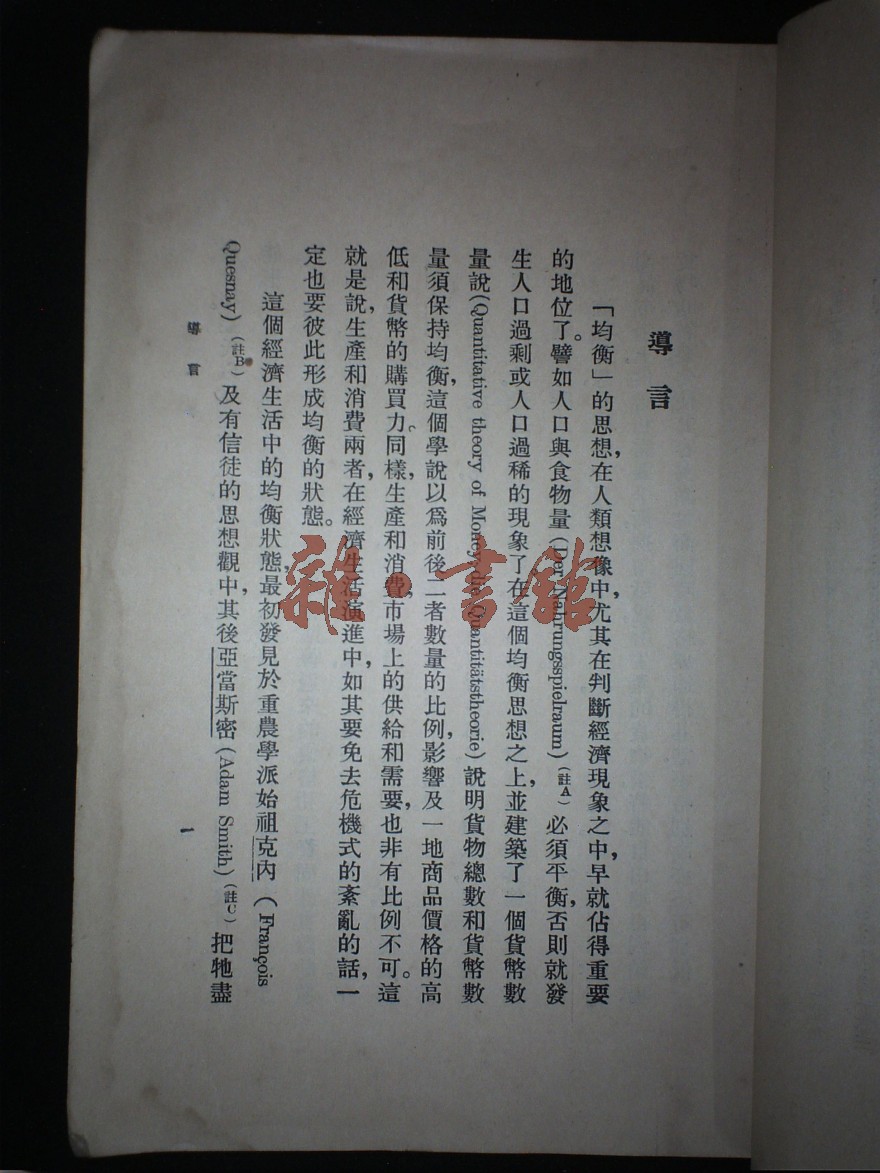 導言
「均衡」的思想，在人類想像中，尤其在判斷經濟現象之中，早就佔得重要
的地位了。譬如人口與食物量(Der Nahrungsspielraum)(註A)必須平衡，否則就發
生人口過剩或人口過稀的現象了，在這個均衡思想之上，並建築了一個貨幣數
量說(Quantitative theory of Money, die Quantitätstheorie)說明貨物總數和貨幣數
量須保持均衡，這個學說以爲前後二者數量的比例，影響及一地商品價格的高
低和貨幣的購買力。同樣，生產和消費，市場上的供給和需要，也非有比例不可。這
就是說，生產和消費兩者，在經濟生活演進中，如其要免去危機式的紊亂的話，一
定也要彼此形成均衡的狀態。
這個經濟生活中的均衡狀態，最初發見於重農學派始祖克內(François
Quesnay)(註B)及有信徒的思想觀中，其後亞當斯密(Adam Smith)(註C)把牠盡
導言
一
雜·書館